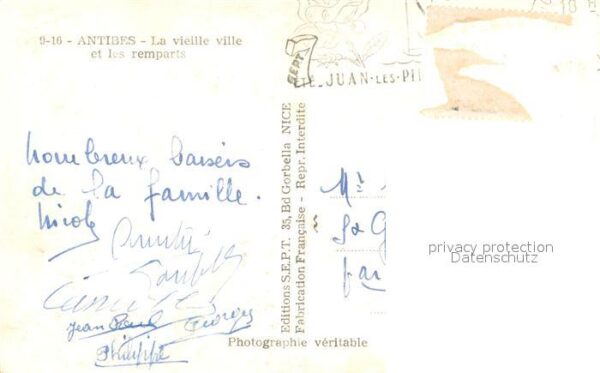 9-16 - ANTIBES - La vieille ville
et les remparts
nombreux baisers
de la famille.
Nicole
Jean Paul Georges
Philippe
Editions S.E.P.T. 35, Bd Gorbella NICE
Fabrication Française - Repr. Interdite
Photographie véritable
JUAN-LES-PI
SEPT.
18 H
Mr
privacy protection
Datenschutz